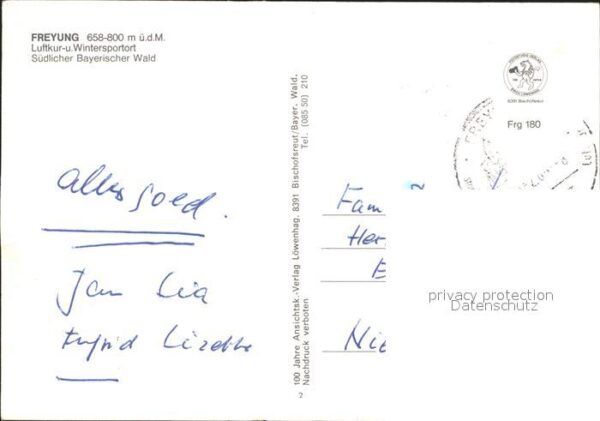 FREYUNG 658-800 m ü.d.M.
Luftkur-u.Wintersportort
Südlicher Bayerischer Wald
8391 Bischofsreut
Frg 180
alles goed.
Jan Lia
Ingrid Lizette
100 Jahre Ansichtsk.-Verlag Löwenhag. 8391 Bischofsreut/Bayer. Wald.
Nachdruck verboten Tel. (085 50) 210
2
Fam
Her
E
Nie
privacy protection
Datenschutz